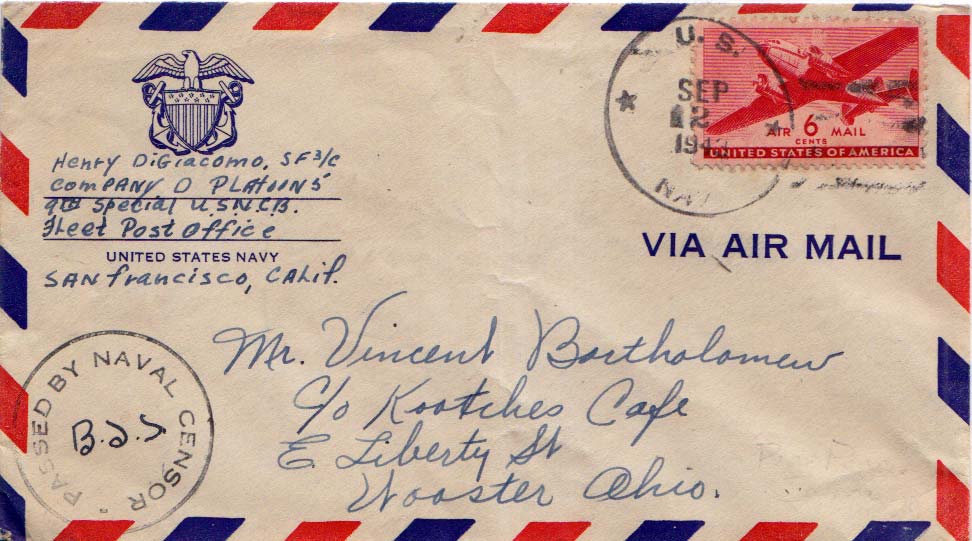 Henry DiGiacomo, SF3/c
Company D Platoon 5
9th Special U.S.N.C.B.
Fleet Post Office
UNITED STATES NAVY
San Francisco, Calif.
U. S.
SEP
12
NAVY
AIR 6 MAIL
CENTS
UNITED STATES OF AMERICA
VIA AIR MAIL
Mr. Vincent Bartholomew
c/o Kootches Cafe
E Liberty St
Wooster Ohio.
PASSED BY NAVAL CENSOR
B.J.S